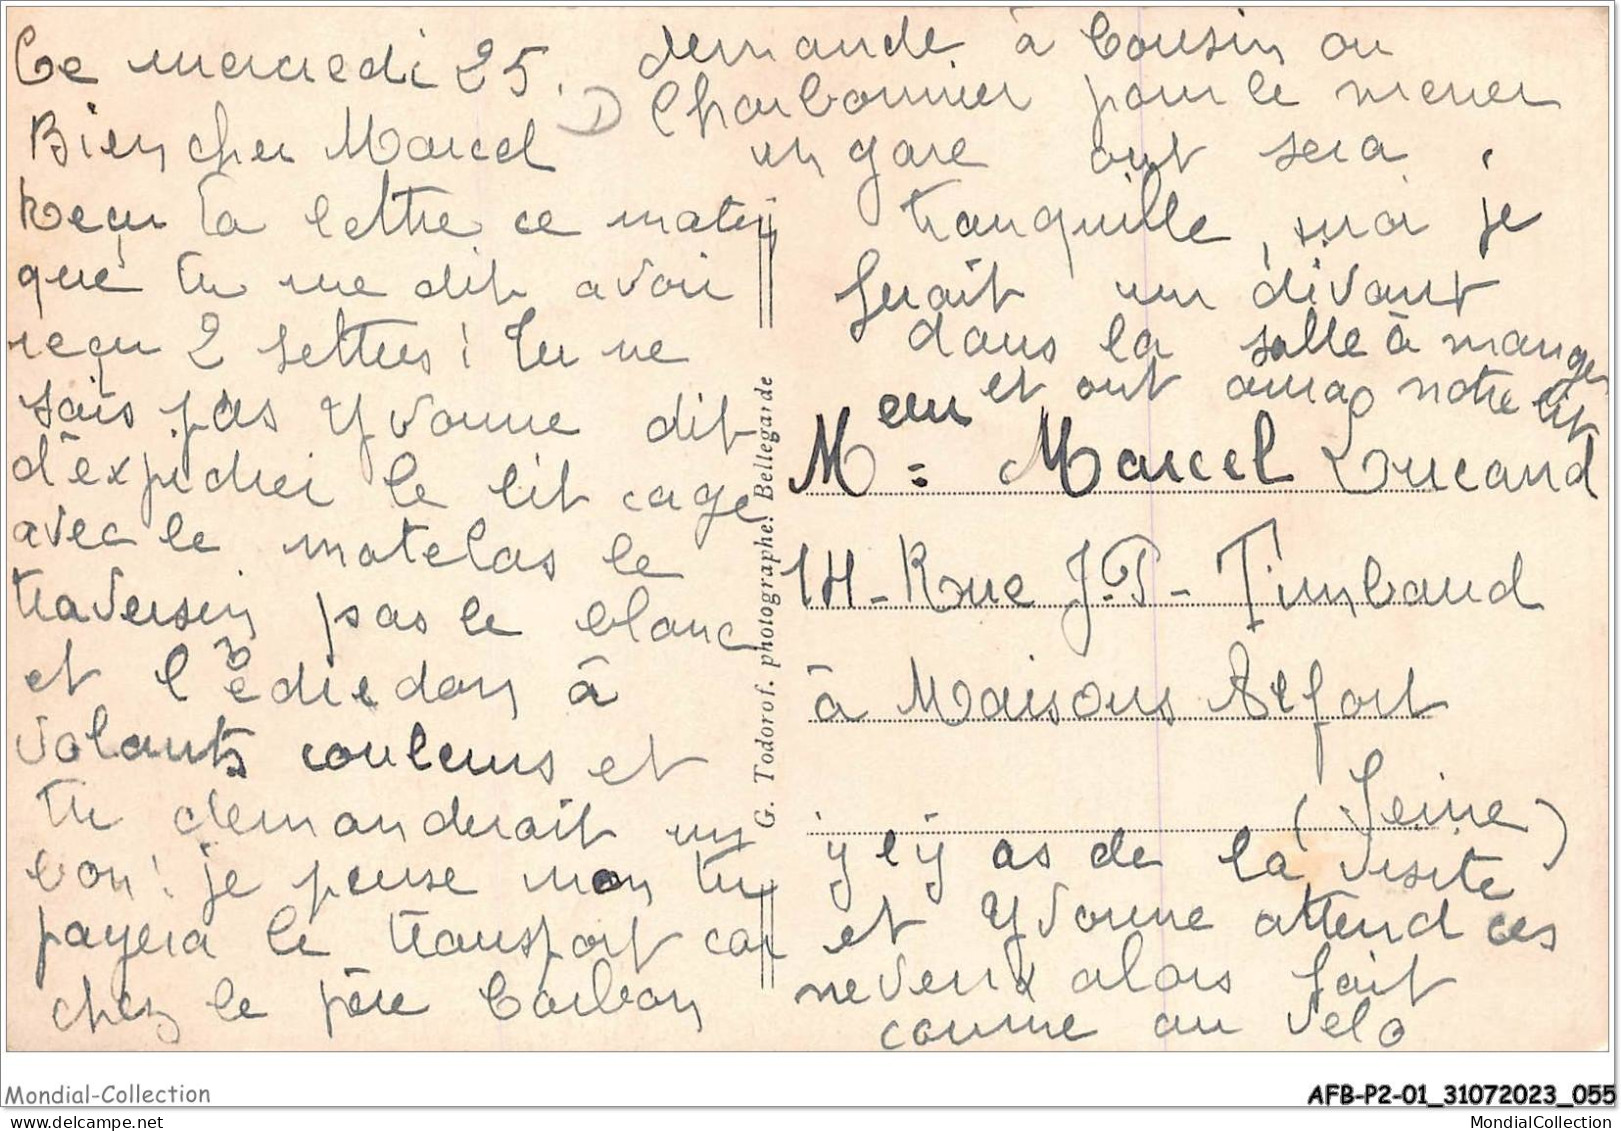 Ce mercredi 25.
Bien cher Marcel
Reçu ta lettre ce matin
que tu me dit avoir
reçu 2 lettres ! Tu ne
sais pas Yvonne dit
d'expidrei le lit cage
avec le matelas le
traversin pas le blanc
et l'édredon à
volants couleurs et
tu demanderait un
bon ! je pense mon tu
payera le transport car
chez le père Carbon
y l y as de la visite
et Yvonne attend ces
neveux alors fait
comme au velo
demande à Cousin ou
Charbonnier pour le mener
en gare ont sera
tranquille, moi je
ferait un divant
dans la salle à manger
et ont aura notre lit
Meur : Marcel
14 - Rue J.P - Timbaud
à Maisons Alfort
(Seine)
G. Todorof. photographe. Bellegarde
Mondial-Collection
AFB-P2-01_31072023_055
www.mondial-collection.com
MondialCollection.com